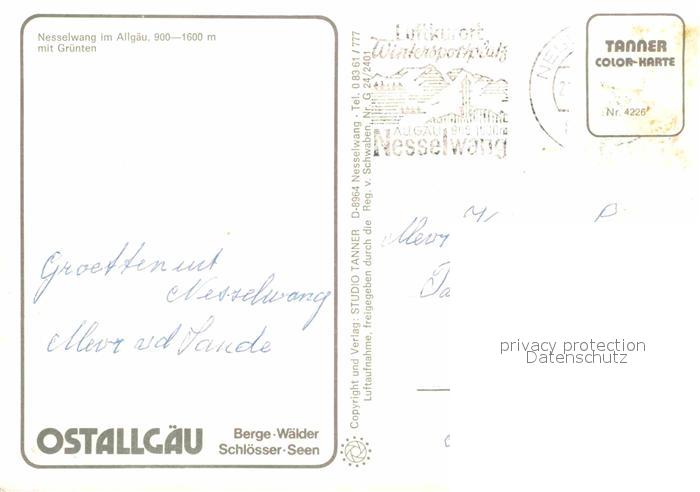 Nesselwang im Allgäu, 900—1600 m
mit Grünten
Groetten uit
Nesselwang
Mevr vd Sande
OSTALLGÄU
Berge · Wälder
Schlösser · Seen
Copyright und Verlag: STUDIO TANNER D-8964 Nesselwang · Tel. 0 83 61 / 777
Luftaufnahme, freigegeben durch die Reg. v. Schwaben, Nr. G 24/2401
Luftkurort
Wintersportplatz
ALLGÄU 900-1600m
Nesselwang
TANNER
COLOR-KARTE
Nr. 4226
Mevr
privacy protection
Datenschutz